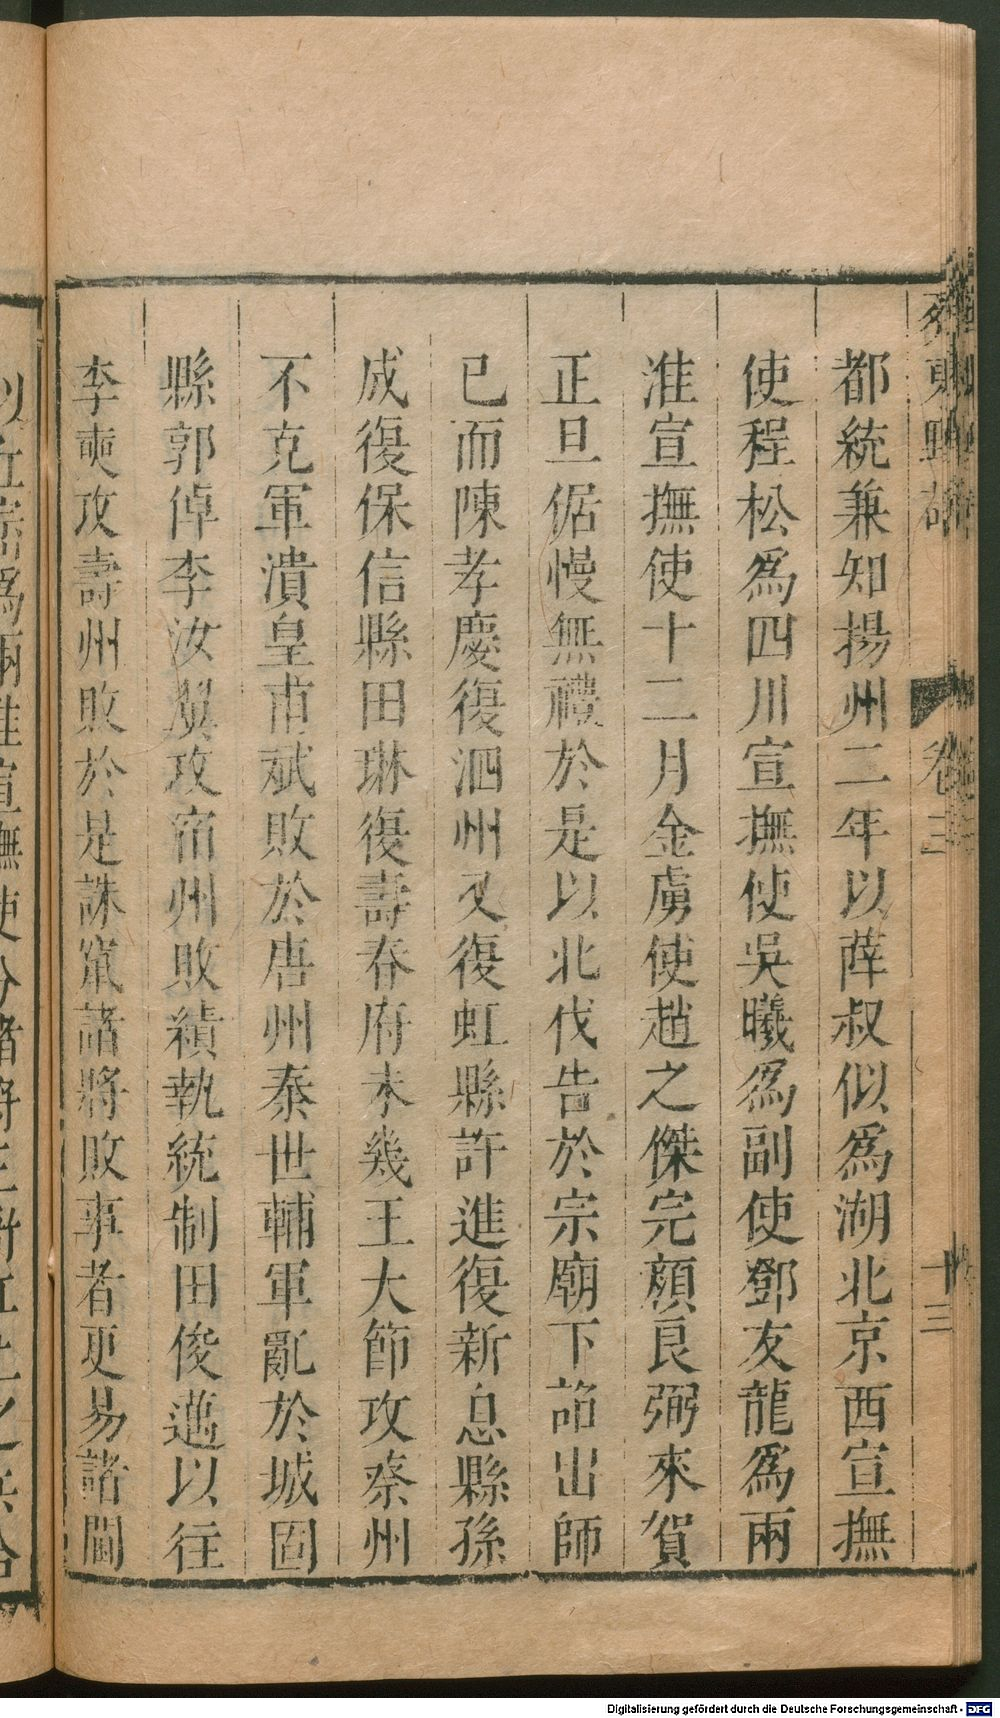 卷三
十三
都統兼知揚州二年以薛叔似爲湖北京西宣撫
使程松爲四川宣撫使吳曦爲副使鄧友龍爲兩
淮宣撫使十二月金虜使趙之傑完顔良弼來賀
正旦倨慢無禮於是以北伐告於宗廟下詔出師
已而陳孝慶復泗州又復虹縣許進復新息縣孫
成復保信縣田琳復壽春府未幾王大節攻蔡州
不克軍潰皇甫斌敗於唐州秦世輔軍亂於城固
縣郭倬李汝翼攻宿州敗績執統制田俊邁以往
李奭攻壽州敗於是誅竄諸將敗事者更易諸閫
Digitalisierung gefördert durch die Deutsche Forschungsgemeinschaft - DFG